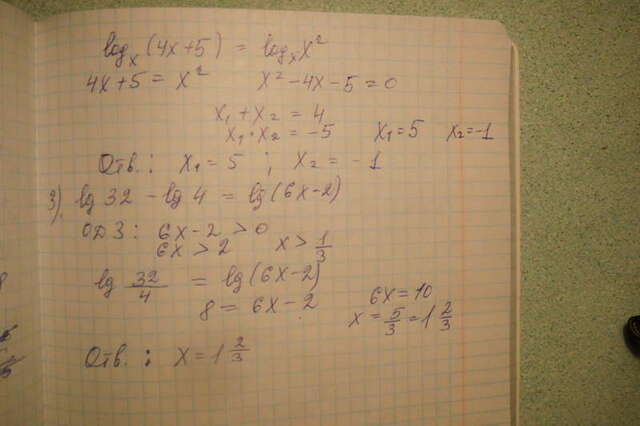 log_x (4x+5) = log_x x²
4x+5 = x² x²-4x-5=0
x₁+x₂ = 4
x₁·x₂ = -5 x₁=5 x₂=-1
Отв.: x₁=5 ; x₂ = -1
3). lg 32 - lg 4 = lg(6x-2)
ОДЗ: 6x-2 > 0
6x > 2 x > 1/3
lg 32/4 = lg(6x-2)
8 = 6x-2 6x=10
x = 5/3 = 1 2/3
Отв. : x = 1 2/3